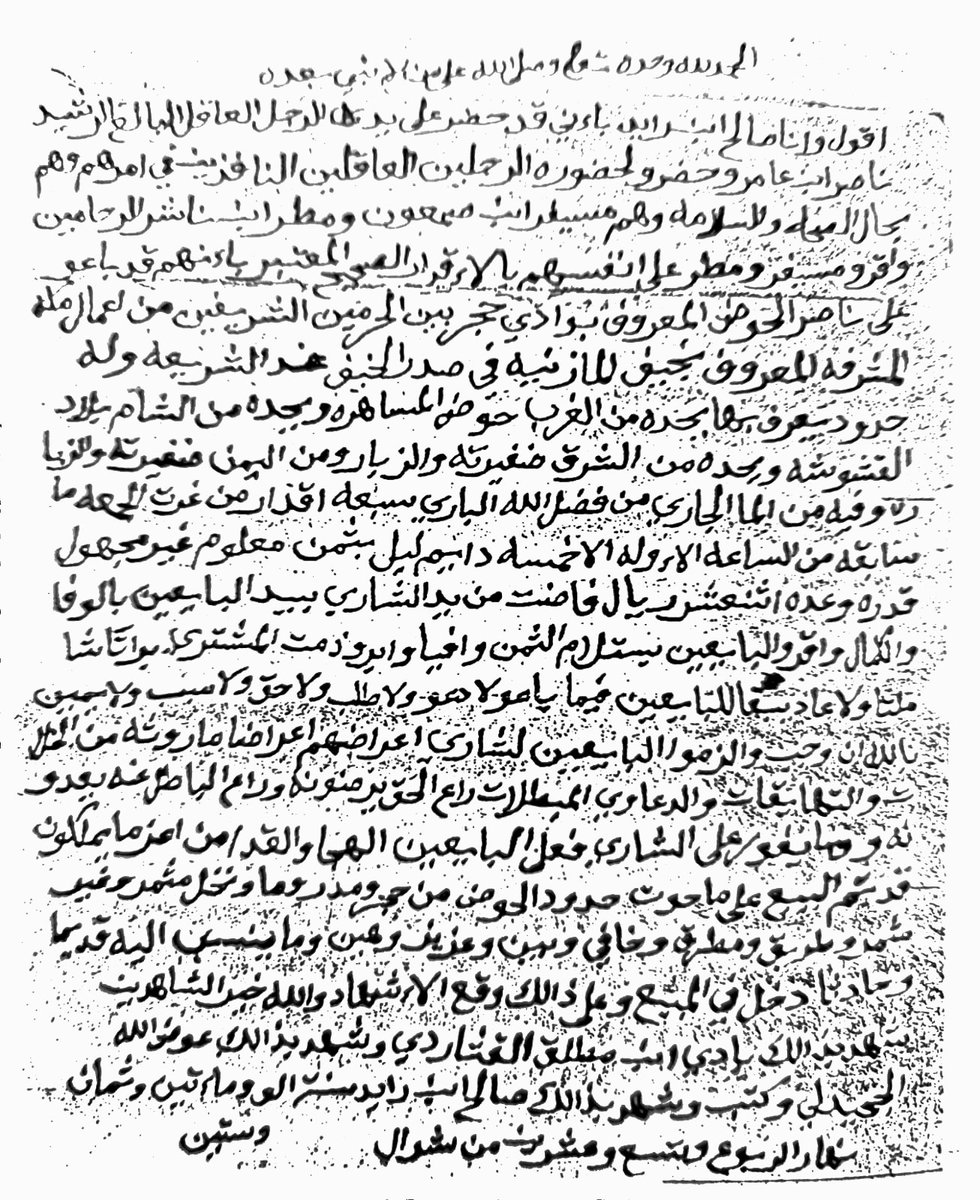 الحمد لله وحده وصلى الله على من لا نبي بعده
اقول وأنا صالح ابن زايد باءني قد حضر على يدي الرجل العاقل البالغ الرشيد
ناصر ابن عامر وحضر ولحضوره الرجلين العاقلين النافذين في امرهم وهم
بحال الصحه والسلامه وهم مسيفر ابن صمعون ومطر ابن ناشر الرحامين
واقرو مسيفر ومطر على انفسهم بالاءقرار الصحيح المعتبر باءنهم قد باعو
على ناصر الحوض المعروف بوادي حجر بين الحرمين الشريفين من اعمال مكه
المشرفه المعروف بخيف المازنيه في صدر الخيف عند الشريعه وله
حدود يعرف بها بحده من الغرب حوض المساهره وبحده من الشام بلاد
القشوشه وبحده من الشرق ضفيرته والزباره ومن اليمن ضفيرته والزبا
ره وفيه من الما الجاري من فضل الله الباري سبعه اقذار من غرت الجمعه ما
سابقه من الساعه الاءوله الا خمسه دايم ليل بثمن معلوم غير مجهول
قدره وعده اثنعشر ريال فاضت من يد الشاري بيد البايعين بالوفا
والكمال واقرو البايعين بستلام الثمن وافيا وابرو ذمت المشتري
ولا عاد بقا للبايعين فيما باعو لا دعو ولا طلب ولا حق ولا سبب ولا يمين
بالله ان وجب والزموا البايعين لشاري اعراضهم اعراضا ماروثه من الخلل
ت والتهايقات والدعاوي المبطلات راع الحق يرضونه وراع الباطل عنه يعدو
نه و على الشاري فعل البايعين والقدا من اعز ما يملكون
قد تم البيع على ما حوت حدود الحوض من حجر ومدر وما ونخل مثمر وغير
مثمر وطريق ومطرق وخافي وبين وعزيز وهين وما ينسب اليه قديما
وحادثا دخل في المبيع وعلى ذالك وقع الاءشهاد والله خير الشاهدين
شهد بذالك بادي ابن مطلق وشهد بذالك عوض الله
وكتب وشهد بذالك صالح ابن زايد سنة الف وماءتين وثمان
وستين
نهار الربوع وتسع وعشرين من شوال